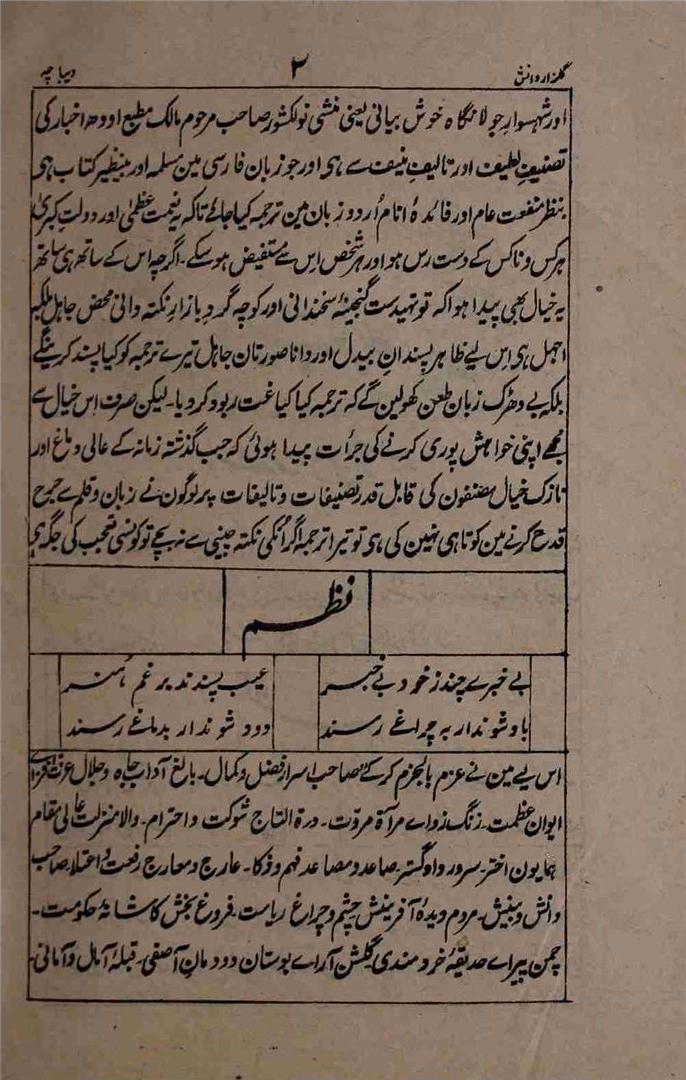 گلزار دانش ۲ دیباچہ
اور شہسوار جولانگاہ خوش بیانی یعنی منشی نولکشور صاحب مرحوم مالک مطبع اودھ اخبار کی
تصنیف لطیف اور تالیف منیف سے ہی اور جو زبان فارسی مین مسلمہ اور بینظیر کتاب ہی
بنظر منفعت عام اور فائدۂ انام اُردو زبان مین ترجمہ کیا جائے تاکہ یہ نعمت عظمٰی اور دولت کبریٰ
ہر کس و ناکس کے دست رس ہو اور ہر شخص اِس سے مستفیض ہو سکے۔ اگرچہ اس کے ساتھ ہی ساتھ
یہ خیال بھی پیدا ہوا کہ تو تہیدست گنجینۂ سخندانی اور کوچہ گرد بازار نکتہ دانی محض جاہل بلکہ
اجہل ہی اِس لیے ظاہر پسندان بیدل اور دانا صورتان جاہل تیرے ترجمہ کو کیا پسند کرینگے
بلکہ بے دھڑک زبان طعن کھولین گے کہ ترجمہ کیا کیا غت ربود کر دیا۔ لیکن صرف اِس خیال سے
مجھے اپنی خواہش پوری کرنے کی جرأت پیدا ہوئی کہ جب گذشتہ زمانہ کے عالی دماغ اور
نازک خیال مصنفون کی قابل قدر تصنیفات و تالیفات پر لوگون نے زبان و قلم سے جرح
قدح کرنے مین کوتاہی نہین کی ہی تو تیرا ترجمہ اگر اُنکی نکتہ چینی سے نہ بچے تو کونسی تعجب کی جگہ ہی
نظم
بے خبرے چند ز خود بے خبر عیب پسندند برغم ہنر
باد شوند ار بہ چراغے رسند دود شوند ار بدماغے رسند
اس لیے مین نے عزم بالجزم کر کے صاحب اسرار فضل و کمال۔ بالغ آداب جاہ و جلال عزت افزاے
ایوان عظمت۔ زنگ زداے مرآة مروّت۔ درة التاج شوکت و احترام۔ والا منزلت عالی مقام
ہمایون اختر۔ سرور داد گستر۔ صاعد و مصاعد فہم و ذکا۔ عارج و معارج رفعت و اعتلا۔ صاحب
دانش و بینش۔ مردم دیدۂ آفرینش چشم و چراغ ریاست۔ فروغ بخش کاشانۂ حکومت۔
چمن پیراے حدیقۂ خردمندی گلشن آراے بوستان دودمان آصفی۔ قبلۂ آمال و آمانی۔